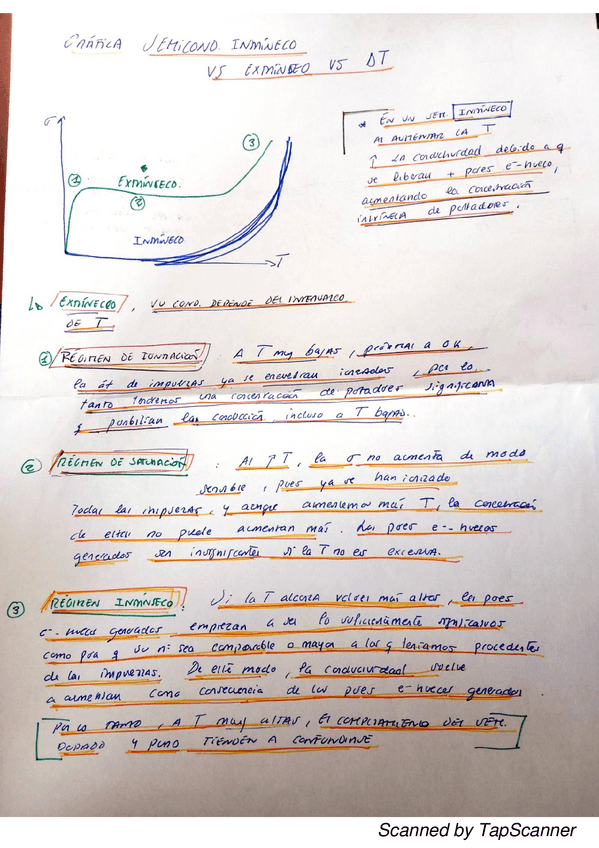 GRÁFICA SEMICOND. INTRÍNSECO
VS EXTRÍNSECO VS ΔT
σ
①
EXTRÍNSECO.
②
③
INTRÍNSECO
T
* EN UN SEM. INTRÍNSECO
AL AUMENTAR LA T
↑ LA conductividad debido a q
se liberan + pares e⁻-hueco,
aumentando la concentración
intrínseca de portadores.
↳ EXTRÍNSECO, SU COND. DEPENDE DEL INTERVALO
DE T
① RÉGIMEN DE IONIZACIÓN: A T muy bajas, próximas a 0K,
la át de impurezas ya se encuentran ionizados, por lo
tanto tendremos una concentración de portadores significativa
y posibilitan la conducción incluso a T bajas.
② RÉGIMEN DE SATURACIÓN: Al ↑ T, la σ no aumenta de modo
sensible, pues ya se han ionizado
todas las impurezas, y aunque aumentemos más T, la concentración
de estas no puede aumentar más. Los pares e⁻-huecos
generados son insignificantes si la T no es excesiva.
③ RÉGIMEN INTRÍNSECO: Si la T alcanza valores más altos, los pares
e⁻-hueco generados empiezan a ser lo suficientemente significativos
como para q su nº sea comparable o mayor a los q teníamos procedentes
de las impurezas. De este modo, la conductividad vuelve
a aumentar como consecuencia de los pares e⁻-huecos generados.
POR LO TANTO, A T MUY ALTAS, EL COMPORTAMIENTO DEL SEM.
DOPADO Y PURO TIENDEN A CONFUNDIRSE
Scanned by TapScanner